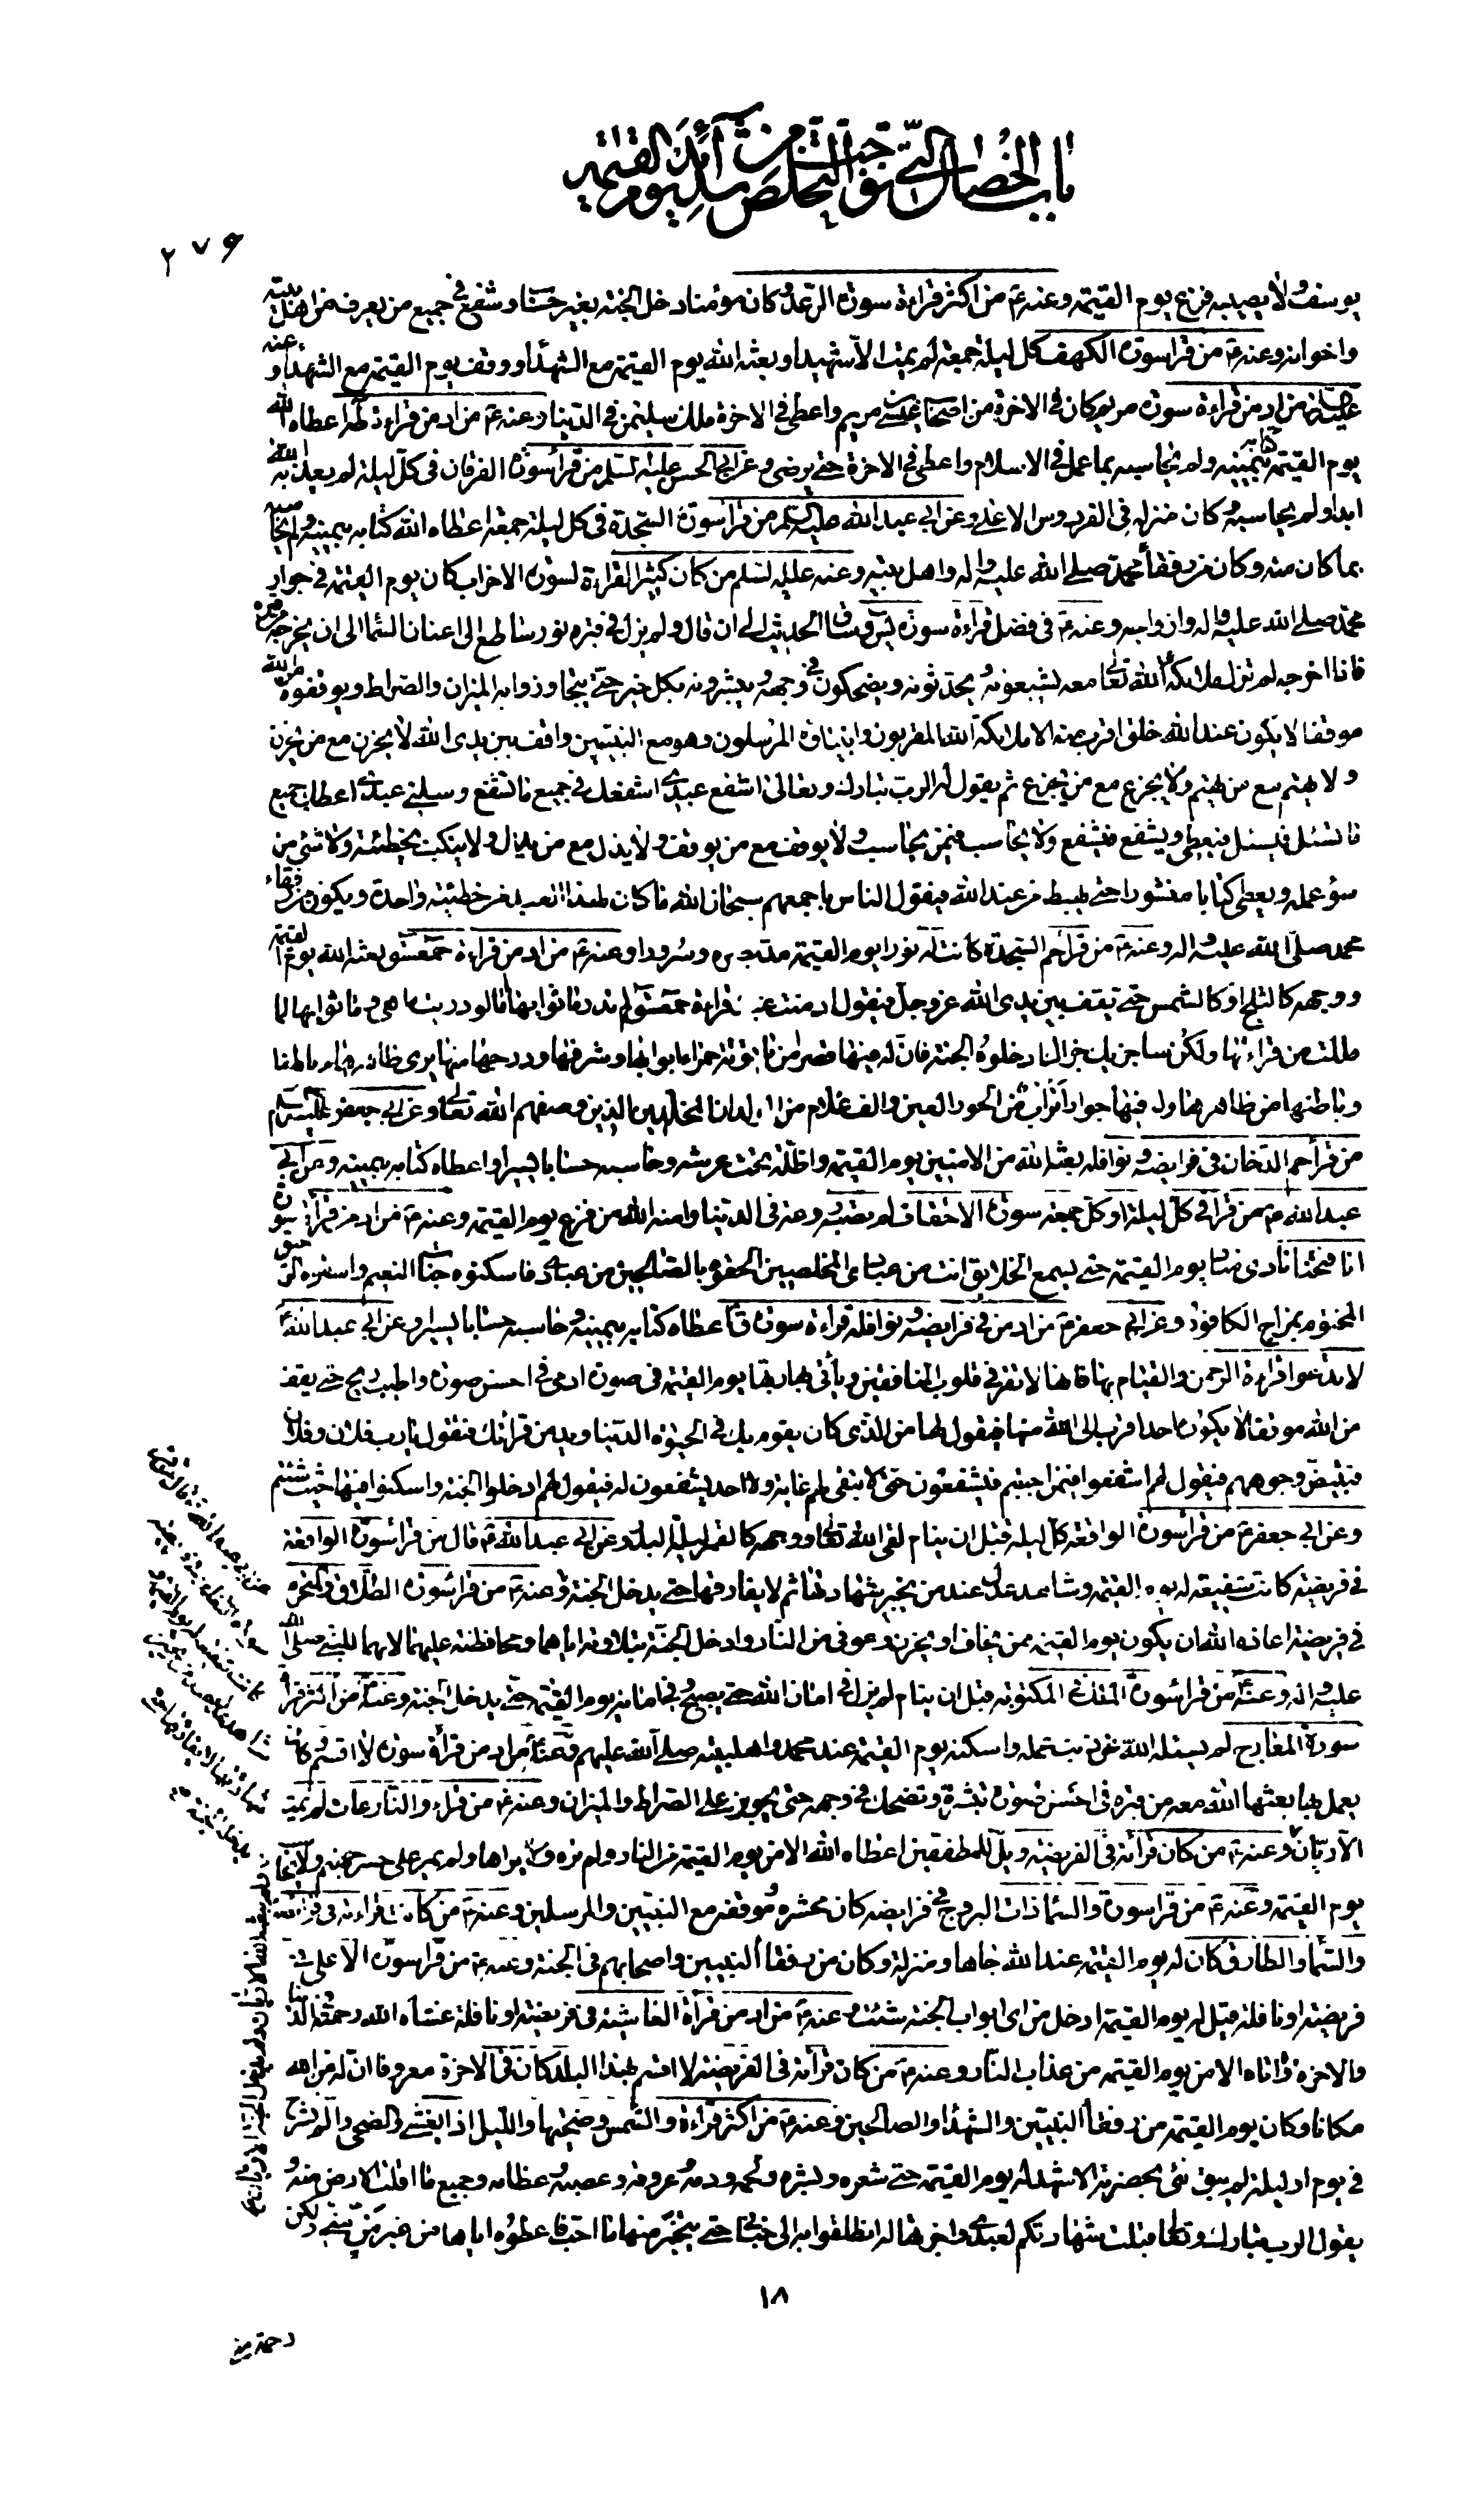 باب الخصال التی توجب التخلص من شدائد القیمة
۲۷۶
یوسف و لا یصیبه فزع یوم القیمة و عنه ع من اکثر قراءة سورة الرعد و کان مؤمنا دخل الجنة بغیر حساب و شفع فی جمیع من یعرف من اهل بیته
و اخوانه و عنه ع من قرا سورة الکهف کل لیلة جمعة لم یمت الا شهیدا و بعثه الله یوم القیمة مع الشهداء و وقف یوم القیمة مع الشهداء و عنه
علیه من ادمن قراءة سورة مریم کان فی الاخرة من اصحاب عیسی بن مریم و اعطی فی الاخرة ملک سلیمن فی الدنیا و عنه ع من ادمن قراءة طه اعطاه الله
یوم القیمة کتابه بیمینه و لم یحاسبه بما عمل فی الاسلام و اعطی فی الاخرة حتی یرضی و عن ابی الحسن علیه السلم من قرأ سورة الفرقان فی کل لیلة لم یعذبه الله
ابدا و لم یحاسبه و کان منزله فی الفردوس الاعلی و عن ابی عبد الله علیه السلم من قرأ سورة السجدة فی کل لیلة جمعة اعطاه الله کتابه بیمینه و لم یحاسبه
بما کان منه و کان من رفقاء محمد صلی الله علیه و اله و اهل بیته و عنه علیه السلم من کان کثیر القراءة لسورة الاحزاب کان یوم القیمة فی جوار
محمد صلی الله علیه و اله و ازواجه و عنه ع فی فضل قراءة سورة یس و ساق الحدیث الی ان قال و لم یزل فی قبره نور ساطع الی اعنان السماء الی ان یخرجه من قبره
فاذا اخرجه لم تزل ملائکة الله تعالی معه یشیعونه و یحدثونه و یضحکون فی وجهه و یبشرونه بکل خیر حتی یتجاوزوا به المیزان و الصراط و یوقفوه من الله
موقفا لا یکون عند الله خلق اقرب منه الا ملائکة الله المقربون و انبیاؤه المرسلون و هو مع النبیین واقف بین یدی الله لا یحزن مع من یحزن
و لا یهتم مع من یهتم و لا یجزع مع من یجزع ثم یقول له الرب تبارک و تعالی اشفع عبدی اشفعک فی جمیع ما تشفع و سلنی عبدی اعطک جمیع
ما تسئل فیسئل فیعطی و یشفع فیشفع و لا یحاسب فیمن یحاسب و لا یوقف مع من یوقف و لا یذل مع من یذل و لا ینکب بخطیئته و لا شئ من
سوء عمله و یعطی کتابا منشورا حتی یهبط من عند الله فیقول الناس باجمعهم سبحان الله ما کان لهذا العبد من خطیئة واحدة و یکون من رفقاء
محمد صلی الله علیه و اله و عنه ع من قرأ حم السجدة کانت له نورا یوم القیمة مد بصره و سرورا و عنه ع من ادمن قراءة حمعسق بعثه الله یوم القیمة
و وجهه کالثلج او کالشمس حتی یقف بین یدی الله عز و جل فیقول ادمنت عبدی قراءة حمعسق و لم تدر ما ثوابها اما لو دریت ما هی و ما ثوابها لما
مللت من قراءتها و لکن ساجزیک جزاک ادخلوه الجنة فان له فیها قصرا من یاقوتة حمراء ابوابها و شرفها و درجها منها یری ظاهرها من باطنها
و باطنها من ظاهرها و له فیها جوار اتراب من الحور العین و الف غلام من الولدان المخلدین الذین وصفهم الله تعالی و عن ابی جعفر علیه السلام
من قرأ حم الدخان فی فرایضه و نوافله بعثه الله من الامنین یوم القیمة و اظله تحت عرشه و حاسبه حسابا یسیرا و اعطاه کتابه بیمینه و عن ابی
عبد الله ع من قرا فی کل لیلة او کل جمعة سورة الاحقاف لم یصبه روعة فی الدنیا و امنه الله من فزع یوم القیمة و عنه ع من ادمن قراءة سورة
انا فتحنا نادی مناد یوم القیمة حتی یسمع الخلایق انت من عبادی المخلصین الحقوه بالصالحین من عبادی فاسکنوه جنات النعیم و اسقوه الرحیق
المختوم بمزاج الکافور و عن ابی جعفر ع من ادمن فی فرایضه و نوافله قراءة سورة ق اعطاه کتابه بیمینه و حاسبه حسابا یسیرا و عن ابی عبد الله ع
لا تدعوا قراءة الرحمن و القیام بها فانها لا تقر فی قلوب المنافقین و یأتی بها ربها یوم القیمة فی صورة ادمی فی احسن صورة و اطیب ریح حتی یقف
من الله موقفا لا یکون احد اقرب الی الله منها فیقول لها من الذی کان یقوم بک فی الحیوة الدنیا و یدمن قرائتک فتقول یا رب فلان و فلان
فتبیض وجوههم فیقول لهم اشفعوا فیمن احببتم فیشفعون حتی لا یبقی لهم غایة و لا احد یشفعون له فیقول لهم ادخلوا الجنة و اسکنوا فیها حیث شئتم
و عن ابی جعفر ع من قرأ سورة الواقعة کل لیلة قبل ان ینام لقی الله تعالی و وجهه کالقمر لیلة البدر و عن ابی عبد الله ع قال من قرأ سورة الواقعة
فی فریضة کانت شفیعة له یوم القیمة و شاهد عدل عند من یجیز شهادتها ثم لا یفارقها حتی یدخل الجنة و عنه ع من قرأ سورة الطلاق و التحریم
فی فریضة اعاذه الله ان یکون یوم القیمة ممن یخاف او یحزن و عوفی من النار و ادخل الجنة بتلاوته ایاهما و محافظته علیهما لانهما للنبی صلی الله
علیه و اله و عنه ع من قرأ سورة الملک فی المکتوبة قبل ان ینام لم یزل فی امان الله حتی یصبح و فی امانه یوم القیمة حتی یدخل الجنة و عنه ع من اکثر قراءة
سورة المعارج لم یسئله الله عن ذنب عمله و اسکنه یوم القیمة عند محمد و اهل بیته صلی الله علیهم و عنه ع من ادمن قرأة سورة لا اقسم و کان
یعمل بها بعثها الله معه من قبره فی احسن صورة تبشره و تضحک فی وجهه حتی یجوز علی الصراط و المیزان و عنه ع من قراء و النازعات لم یمت
الا ریان و عنه ع من کان قرائته فی الفریضة ویل للمطففین اعطاه الله الامن یوم القیمة من النار و لم تره و لا یراها و لم یمر علی جسر جهنم و لا یحاسب
یوم القیمة و عنه ع من قرأ سورة و السماء ذات البروج فی فرایضه کان محشره و موقفه مع النبیین و المرسلین و عنه ع من کان قراءته فی فرائضه
و السماء و الطارق کان له یوم القیمة عند الله جاها و منزلة و کان من رفقاء النبیین و اصحابهم فی الجنة و عنه ع من قرأ سورة الاعلی فی
فریضة او نافلة قیل له یوم القیمة ادخل من ای ابواب الجنة شئت و عنه ع من ادمن قرأة الغاشیة فی فریضة او نافلة غشاه الله رحمته فی الدنیا
و الاخرة و اتاه الامن یوم القیمة من عذاب النار و عنه ع من کان قرأته فی الفریضة لا اقسم بهذا البلد کان فی الاخرة معروفا ان له من الله
مکانا و کان یوم القیمة من رفقاء النبیین و الشهداء و الصالحین و عنه ع من اکثر قراءة و الشمس و ضحیها و اللیل اذا یغشی و الضحی و الم نشرح
فی یوم او لیلة لم یبق شئ بحضرته الا شهد له یوم القیمة حتی شعره و بشره و لحمه و دمه و عروقه و عصبه و عظامه و جمیع ما اقلت الارض منه و
یقول الرب تبارک و تعالی قبلت شهادتکم لعبدی و اجزتها له انطلقوا به الی جنانی حتی یتخیر منها ما احب فاعطوه ایاها من غیر من منی و لکن
۱۸
رحمة منی